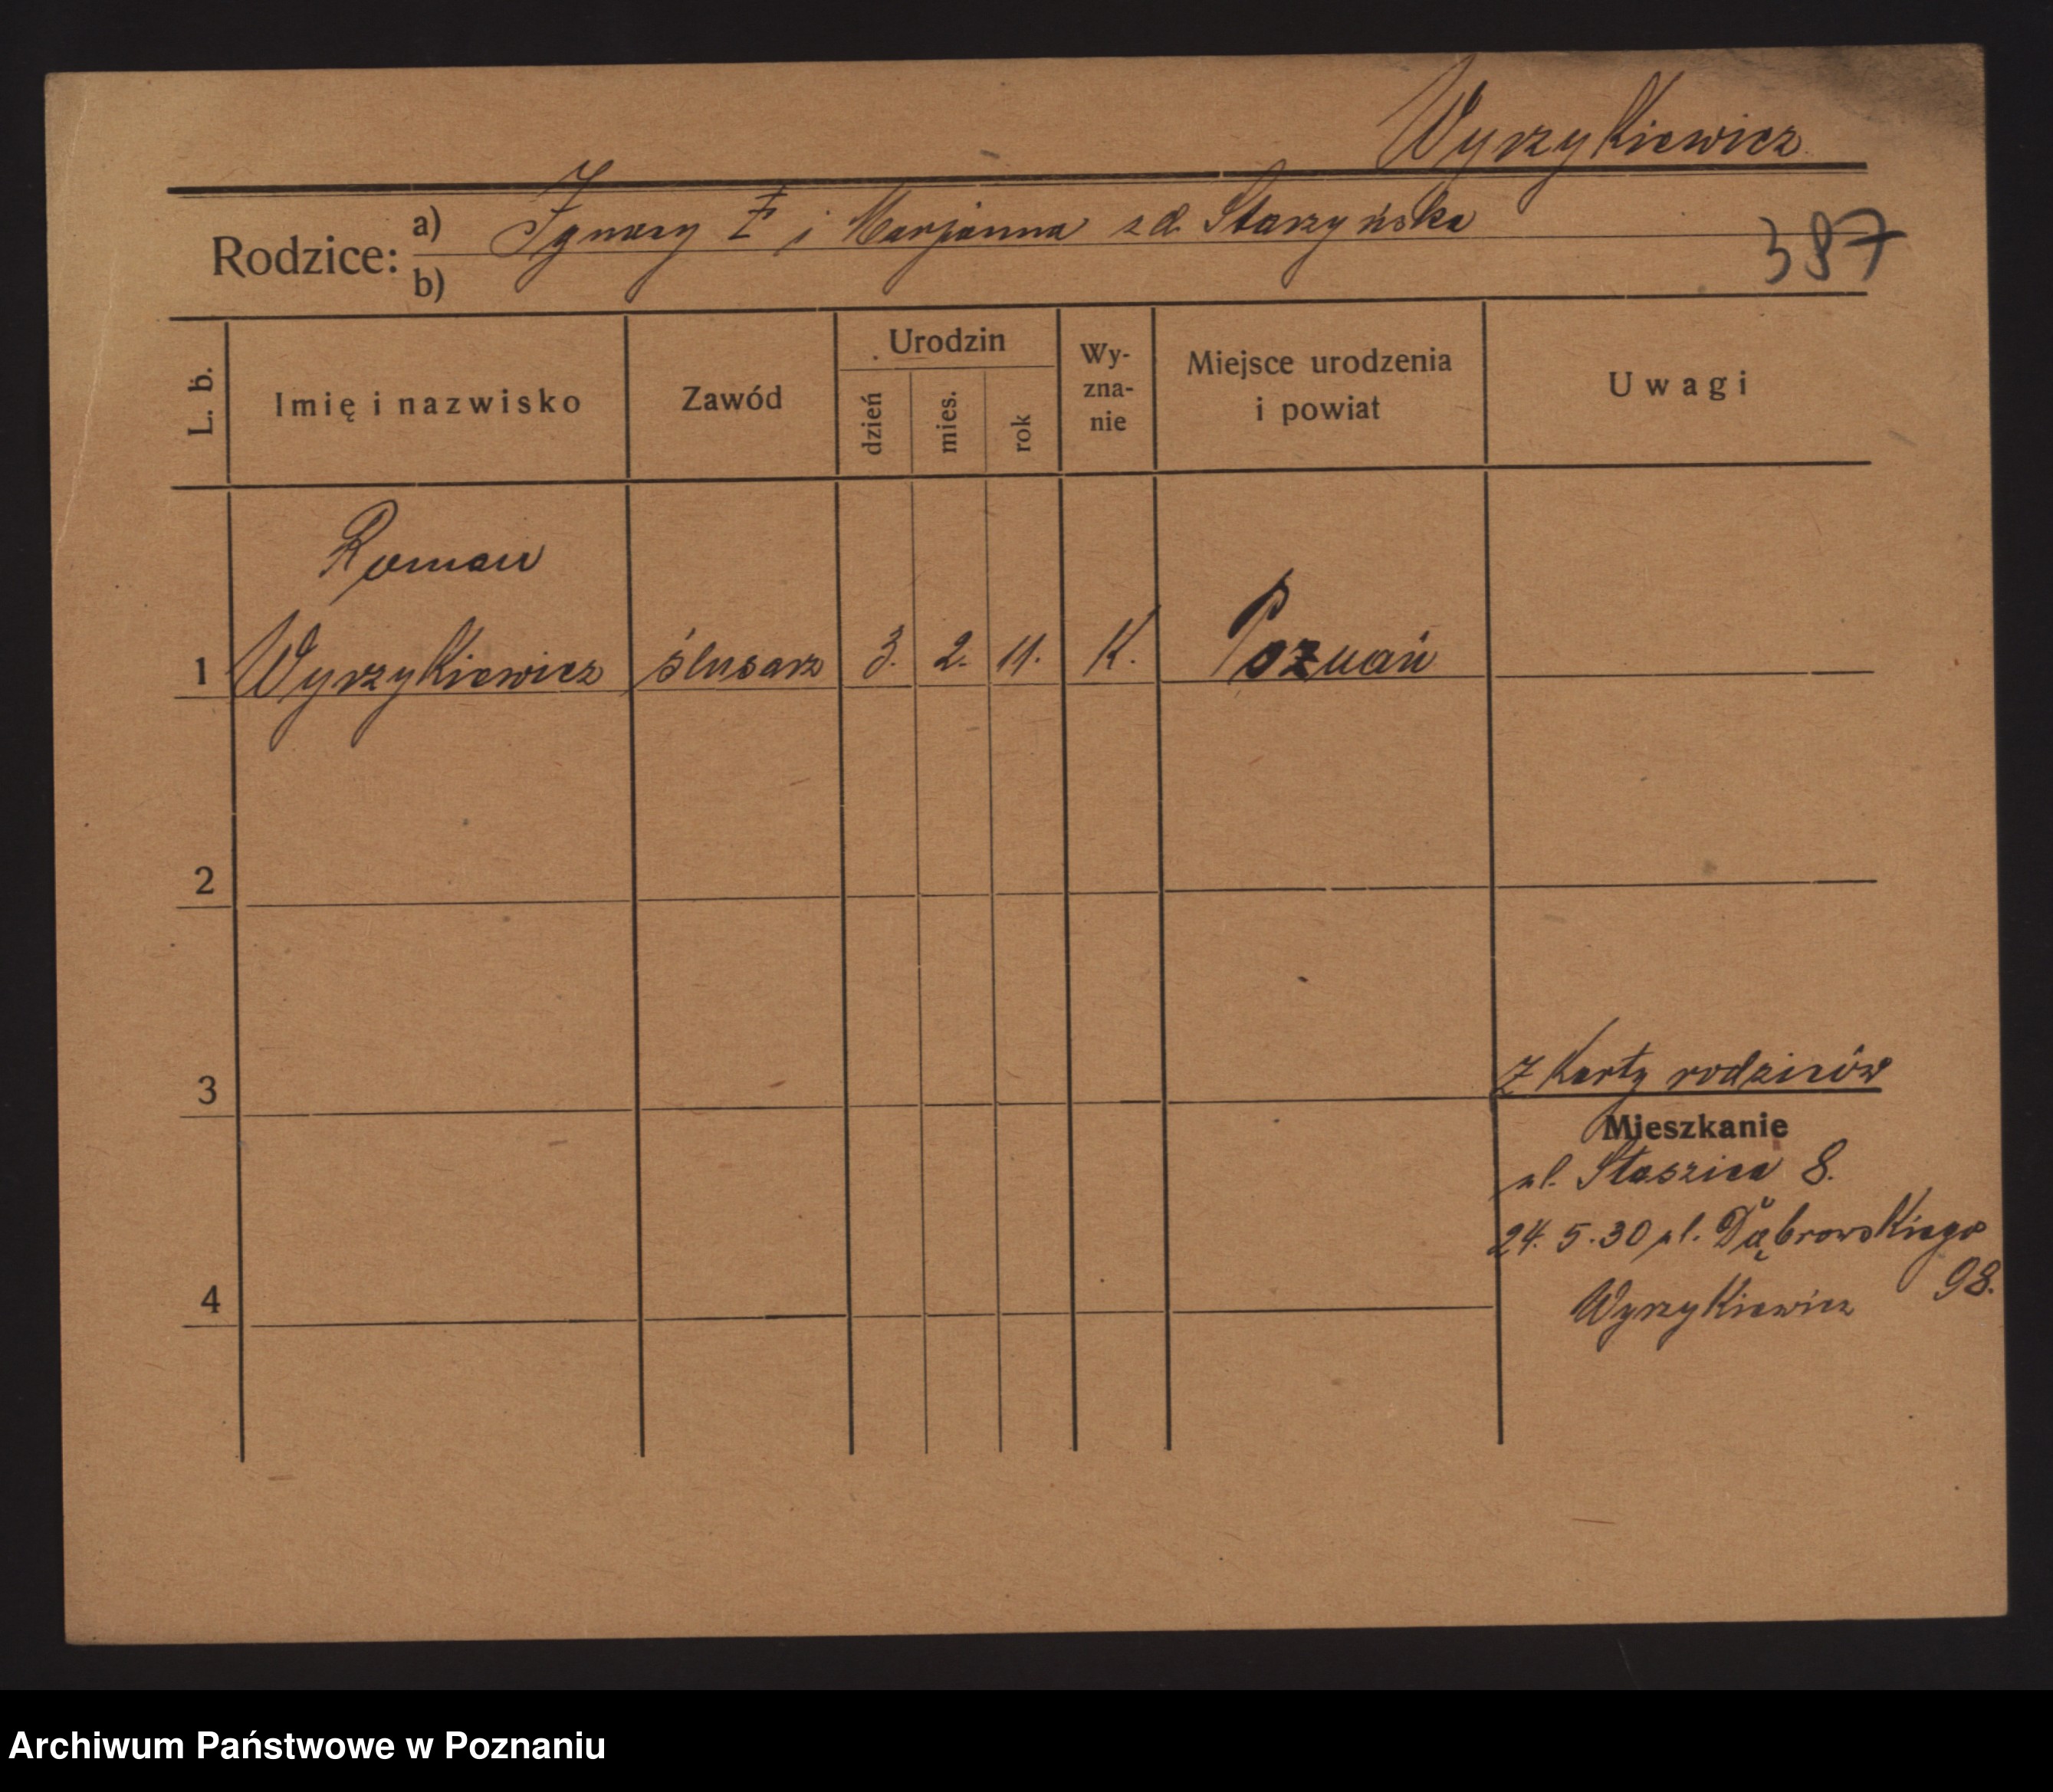 Wyrzykiewicz
Rodzice: a) Ignacy Ł i Marjanna z d. Starzyńska
387
b)
L. b. Imię i nazwisko Zawód Urodzin dzień mies. rok Wy-zna-nie Miejsce urodzenia i powiat Uwagi
Roman
1 Wyrzykiewicz ślusarz 3. 2. 11. K. Poznań
2
3
Z Karty rodziców
Mieszkanie
ul. Staszica 8.
24. 5. 30 ul. Dąbrowskiego
98.
4 Wyrzykiewicz
Archiwum Państwowe w Poznaniu